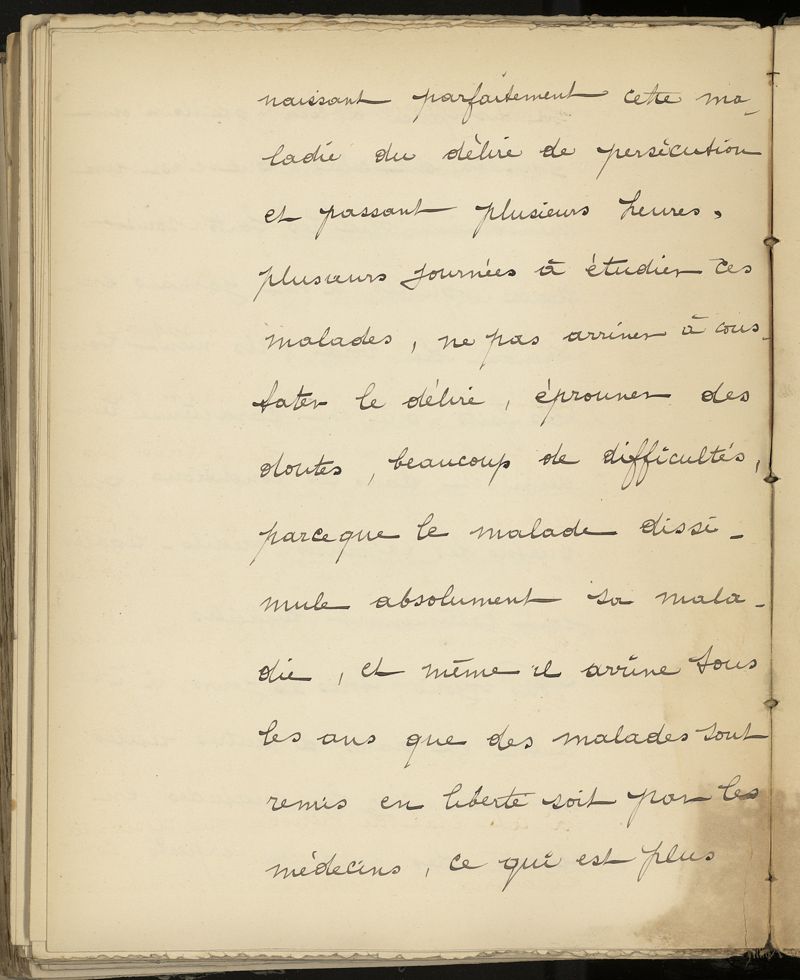 naissant parfaitement cette ma-
ladie du délire de persécution
et passant plusieurs heures,
plusieurs journées à étudier ces
malades, ne pas arriver à cons-
tater le délire, éprouver des
doutes, beaucoup de difficultés,
parceque le malade dissi-
mule absolument sa mala-
die, et même il arrive tous
les ans que des malades sont
remis en liberté soit par les
médecins, ce qui est plus